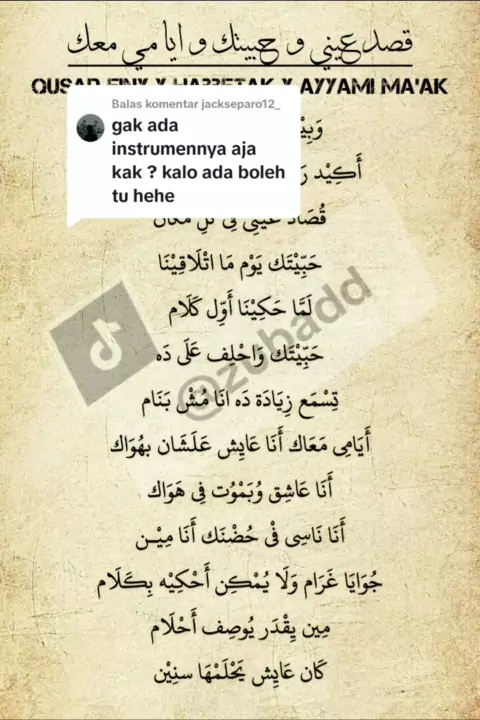 قصد عيني و حبيتك و ايا مي معك
QUSAD EINY X HABBETAK X AYYAMI MA'AK
Balas komentar jackseparo12_
gak ada
instrumennya aja
kak ? kalo ada boleh
tu hehe
أَكِيْد
قُصَاد عَيْنِى فِى كُلِّ مَكَان
حَبِّيْتَك يَوْم مَا اتْلَاقِيْنَا
لَمَّا حَكِيْنَا أَوِّل كَلَام
حَبِّيْتَك وَاحْلِف عَلَى دَه
تِسْمَع زِيَادَة دَه انَا مُشْ بَنَام
أَيَامِى مَعَاك أَنَا عَايِش عَلَشَان بهُوَاك
أَنَا عَاشِق وُبَمْوُت فِى هَوَاك
أَنَا نَاسِى فْى حُضْنَك أَنَا مِيْـن
جُوَايَا غَرَام وَلَا يُمْكِن أَحْكِيْه بِكَلَام
مِين يِقْدَر يُوصِف أَحْلَام
كَان عَايِش يَحْلَمْهَا سنِيْن
@zuhadd